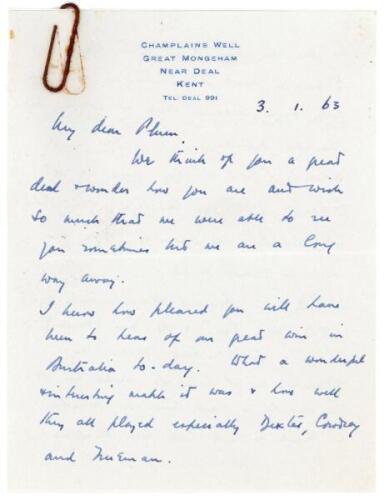 CHAMPLAINS WELL
GREAT MONGEHAM
NEAR DEAL
KENT
TEL: DEAL 991
3. 1. 63
My dear Plum.
We think of you a great
deal & wonder how you are and wish
so much that we were able to see
you sometimes but we are a long
way away.
I know how pleased you will have
been to hear of our great win in
Australia to-day. What a wonderful
& interesting match it was & how well
they all played especially Dexter, Cowdrey
and Trueman.